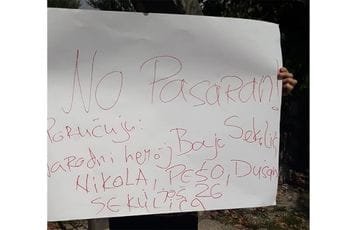 No PasaRan!
PoRučuju:
Narodni heroj Bajo Sekulić
NIKOLA, PEŠO, Dušan
još 26
SEKULIĆA